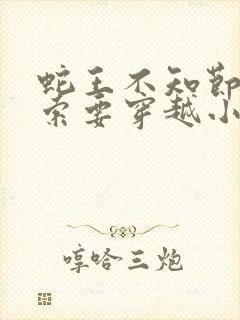 蛇王不知节
索要穿越小
哼哈三炮